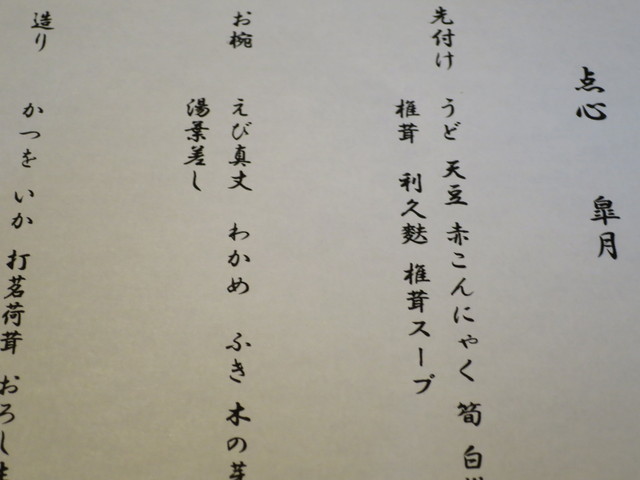 点心 皐月
先付け うど 天豆 赤こんにゃく 筍 白
椎茸 利久麩 椎茸スープ
お椀 えび真丈 わかめ ふき 木の芽
湯葉差し
造り かつを いか 打茗荷茸 おろし